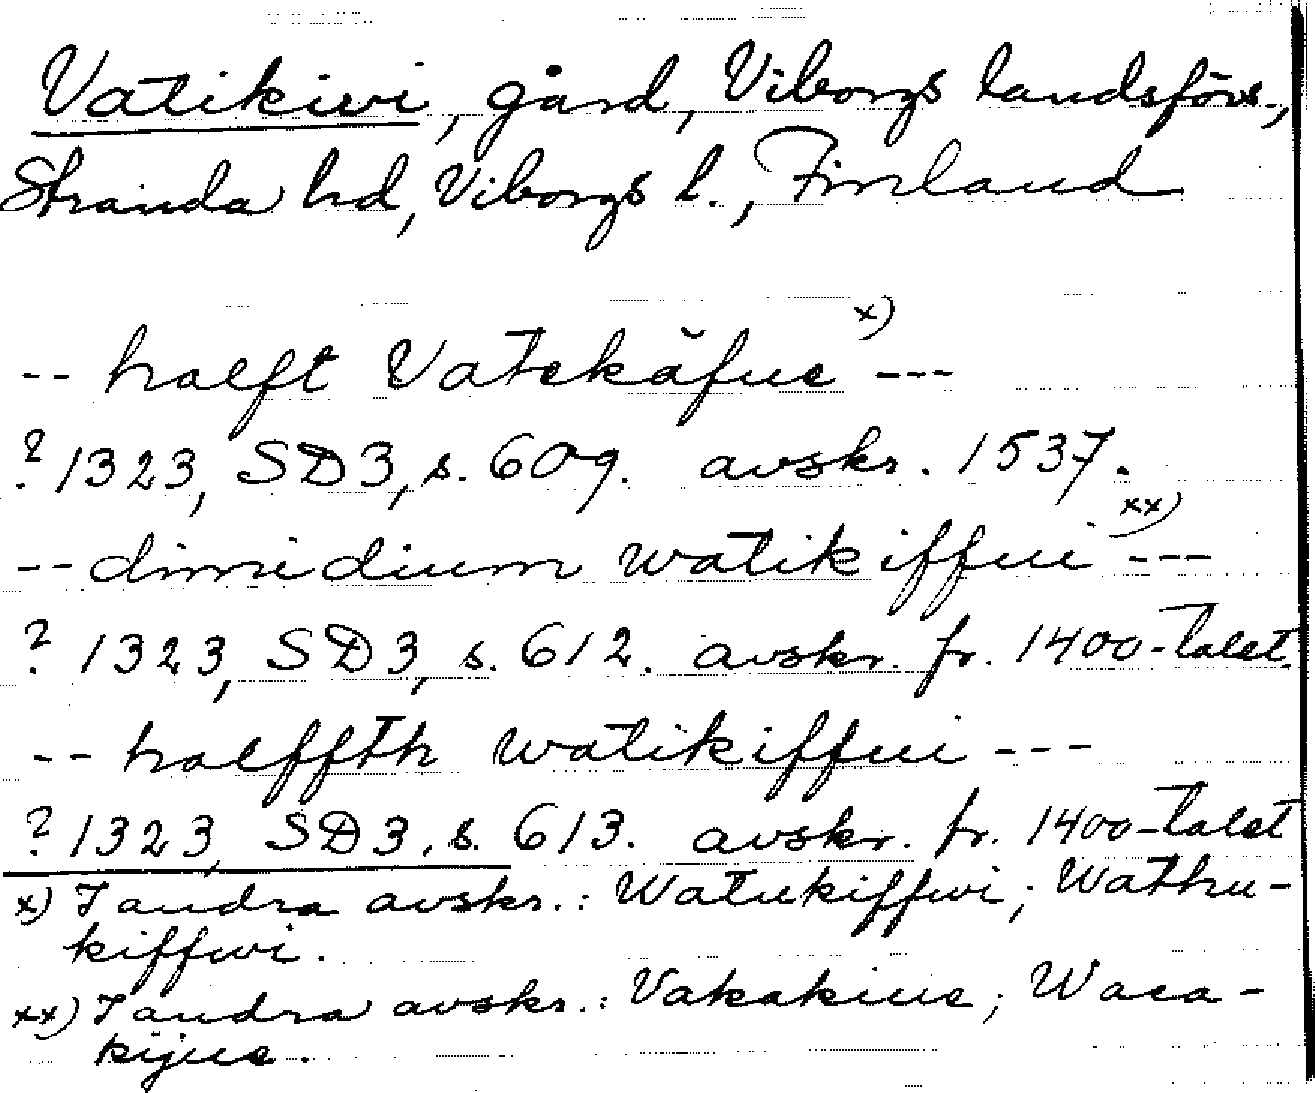 Vatikivi, gård, Viborgs landsförs.,
Stranda hd, Viborgs l., Finland
-- halft Vatekäfue x) ---
? 1323, SD3, s. 609. avskr. 1537.
-- dimidium watikiffui xx) ---
? 1323, SD3, s. 612. avskr. fr. 1400-talet
-- halffth watikiffui ---
? 1323, SD3, s. 613. avskr. fr. 1400-talet
x) I andra avskr.: Watukiffwi; Wathu-
kiffwi.
xx) I andra avskr.: Vakakiue; Waca-
kijue.